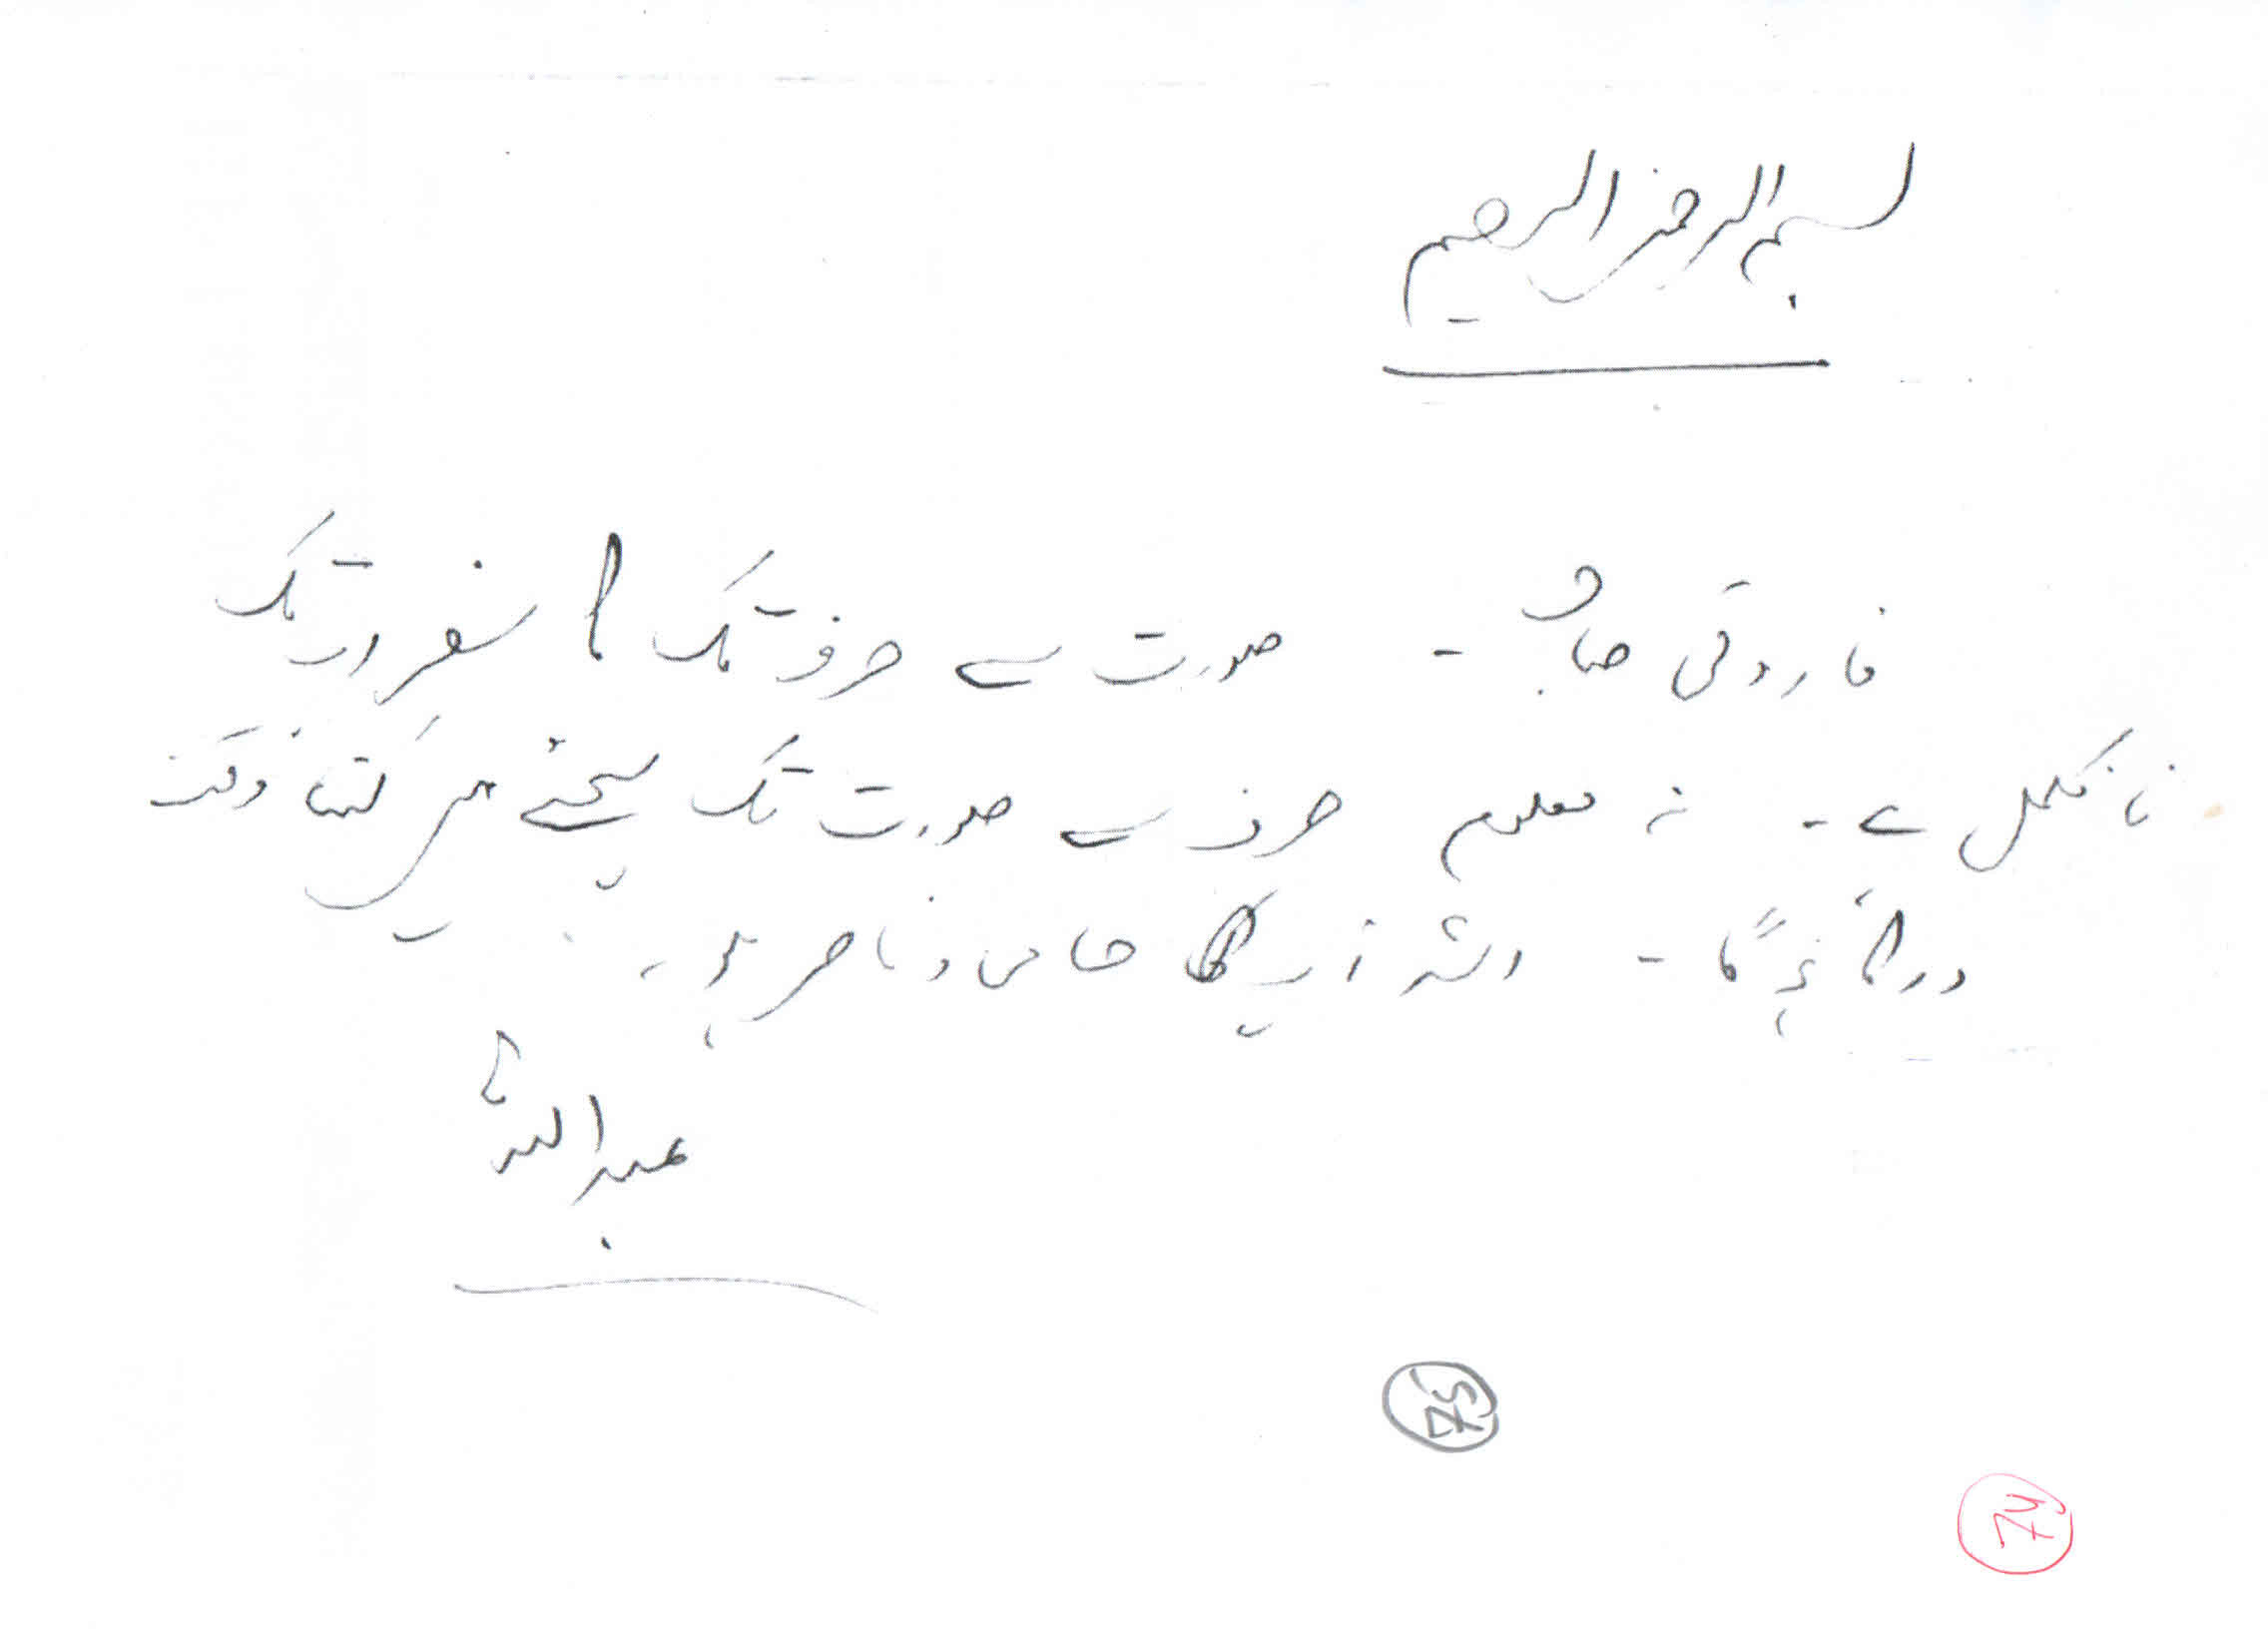 بسم الرحمن الرحیم
فاروقی صاحب ۔ صورت سے حرف تک کا سفر اب تک
نامکمل ہے ۔ نہ معلوم حرف سے صورت تک پہنچنے میں کتنا وقت
درکار ہوگا ۔ اللہ آپ کا حامی و ناصر ہو ۔
عبداللہ